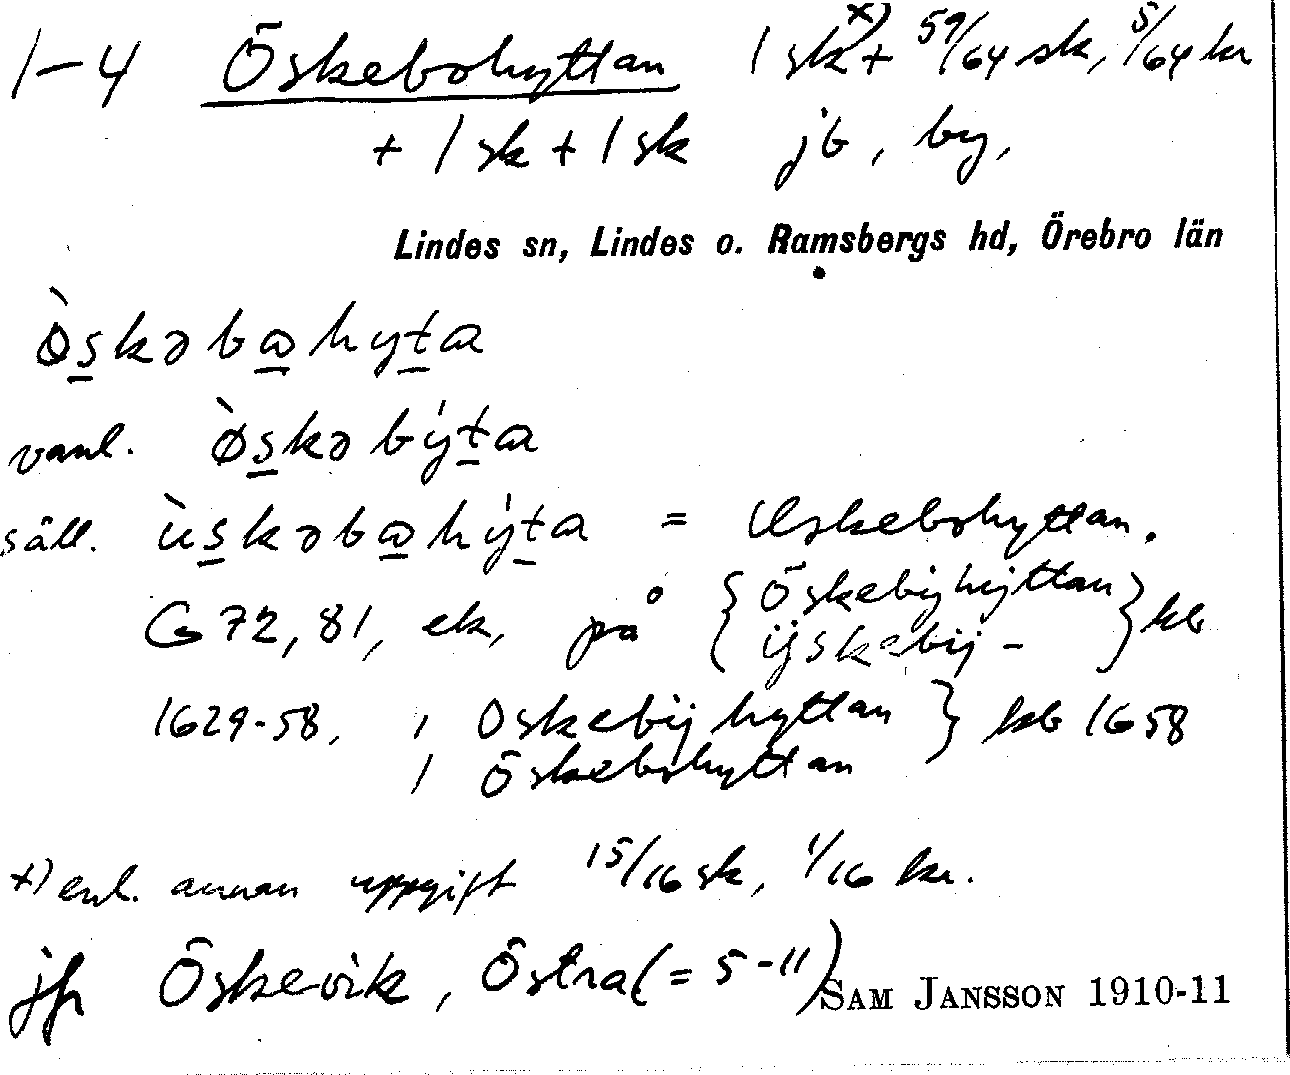 1-4 Öskebohyttan 1 sk x) + 59/64 sk, 5/64 kr
+ 1 sk + 1 sk jb, by,
Lindes sn, Lindes o. Ramsbergs hd, Örebro län
ø̀s̲kəbɷ̲hyt̲a
vanl. ø̀s̲kəbýt̲a
säll. ùs̲kəbɷ̲hýt̲a = Uskebohyttan.
G 72, 81, ek, på { Öskebijhijttan
ÿskebij- } kb
1629-58, i Oskebij hyttan } kb 1658
i Öskebohyttan
x) enl. annan uppgift 15/16 sk, 1/16 kr.
jfr Öskevik, Östra (= 5-11) SAM JANSSON 1910-11